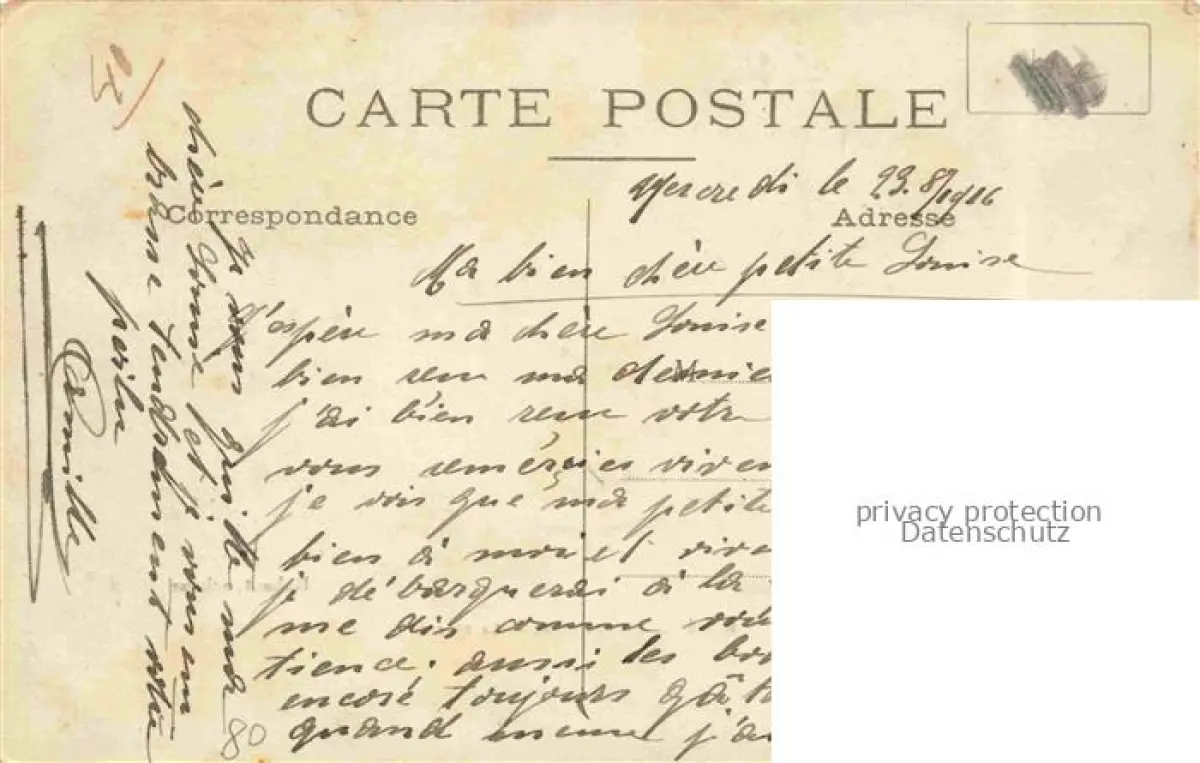 CARTE POSTALE
Correspondance
Adresse
Mercredi le 23.8/1916
Ma bien chère petite Louise
J'espère ma chère Louise
bien reçu ma dernie
j'ai bien reçu votre
vous remércies viven
je vois que ma petite
bien à moi et vive
je débarquerai à la
me dis comme
tience. aussi les bo
encore toujours gât
quand meme j'a
Je vous quitte ma
chère Louise et je vous em
brasse tendrement votre
poilu
Camille
80
privacy protection
Datenschutz